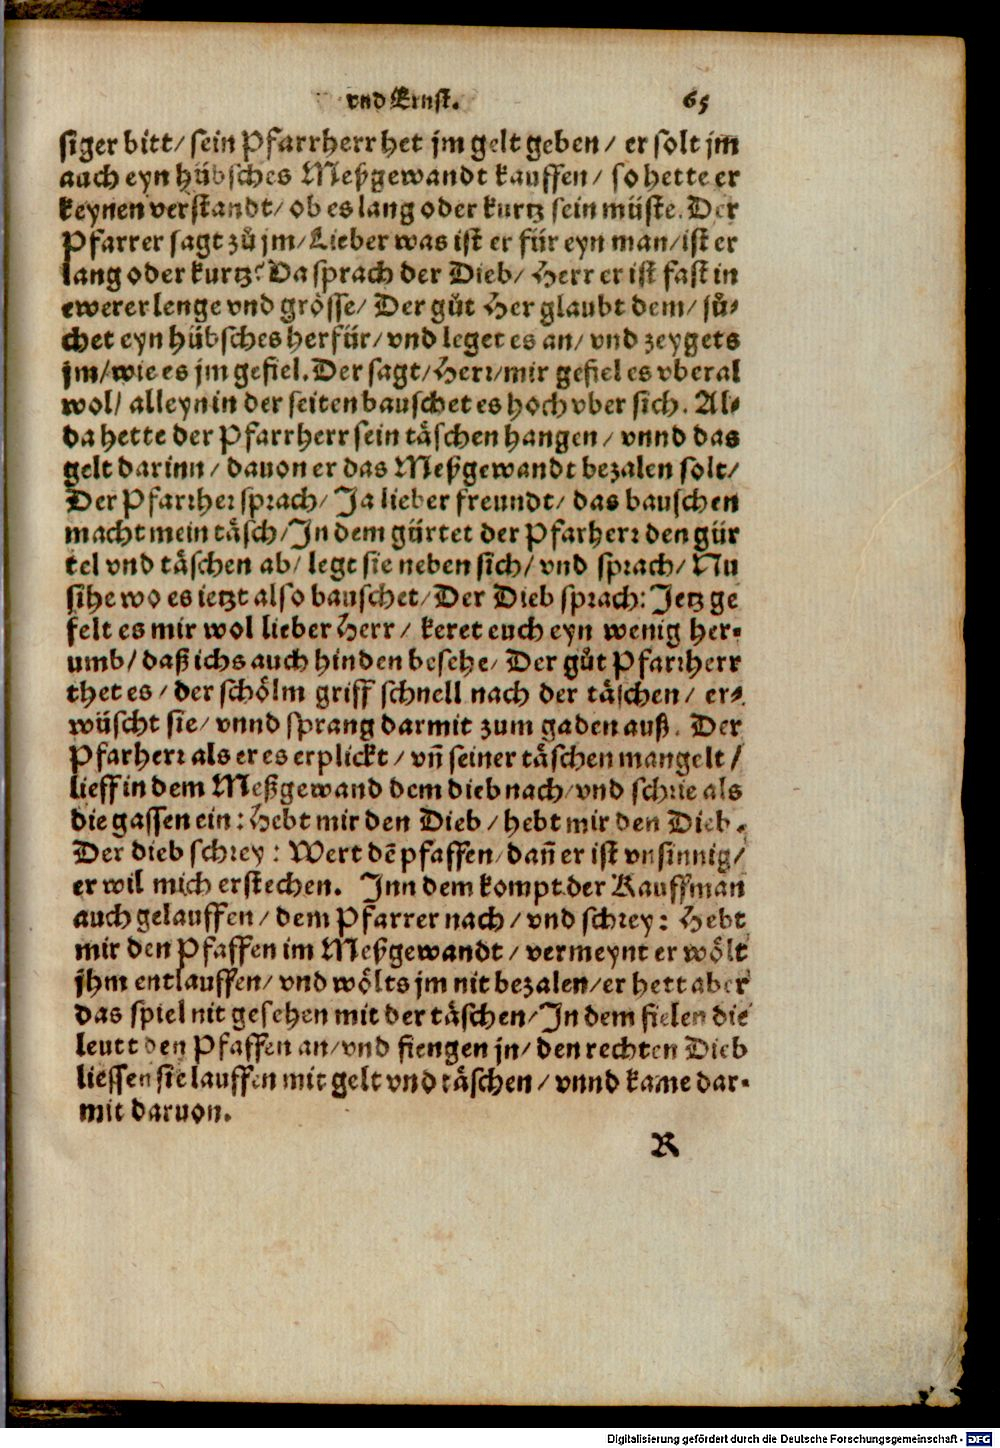 vnd Ernst. 65
siger bitt/ sein Pfarrherr het jm gelt geben/ er solt jm
auch eyn hübsches Meßgewandt kauffen/ so hette er
keynen verstandt/ ob es lang oder kurtz sein müste. Der
Pfarrer sagt zů jm/ Lieber was ist er für eyn man/ ist er
lang oder kurtz? Da sprach der Dieb/ Herr er ist fast in
ewerer lenge vnd grösse/ Der gůt Her glaubt dem/ sů-
chet eyn hübsches herfür/ vnd leget es an/ vnd zeygets
jm/ wie es jm gefiel. Der sagt/ Herr/ mir gefiel es vberal
wol/ alleyn in der seiten bauschet es hoch vber sich. Al-
da hette der Pfarrherr sein täschen hangen/ vnnd das
gelt darinn/ dauon er das Meßgewandt bezalen solt/
Der Pfarrher sprach/ Ja lieber freundt/ das bauschen
macht mein täsch/ In dem gürtet der Pfarherr den gür
tel vnd täschen ab/ legt sie neben sich/ vnd sprach/ Nu
sihe wo es ietzt also bauschet/ Der Dieb sprach: Jetz ge
felt es mir wol lieber Herr/ keret euch eyn wenig her-
umb/ daß ichs auch hinden besehe/ Der gůt Pfarrherr
thet es/ der schölm griff schnell nach der täschen/ er-
wüscht sie/ vnnd sprang darmit zum gaden auß. Der
Pfarherr als er es erplickt/ vñ seiner täschen mangelt/
lieff in dem Meßgewand dem dieb nach/ vnd schrie als
die gassen ein: Hebt mir den Dieb/ hebt mir den Dieb.
Der dieb schrey: Wert dē pfaffen/ dañ er ist vnsinnig/
er wil mich erstechen. Inn dem kompt der Kauffman
auch gelauffen/ dem Pfarrer nach/ vnd schrey: Hebt
mir den Pfaffen im Meßgewandt/ vermeynt er wölt
jhm entlauffen/ vnd wölts jm nit bezalen/ er hett aber
das spiel nit gesehen mit der täschen/ In dem fielen die
leutt den Pfaffen an/ vnd fiengen jn/ den rechten Dieb
liessen sie lauffen mit gelt vnd täschen/ vnnd kame dar-
mit daruon.
R
Digitalisierung gefördert durch die Deutsche Forschungsgemeinschaft - DFG